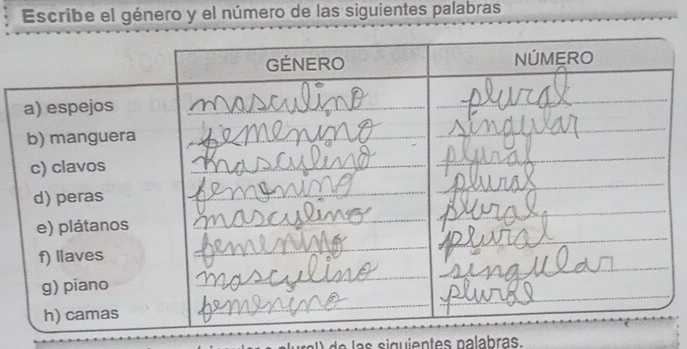 Escribe el género y el número de las siguientes palabras
GÉNERO NÚMERO
a) espejos masculino plural
b) manguera femenino singular
c) clavos masculino plural
d) peras femenino plural
e) plátanos masculino plural
f) llaves femenino plural
g) piano masculino singular
h) camas femenino plural
de las siguientes palabras.